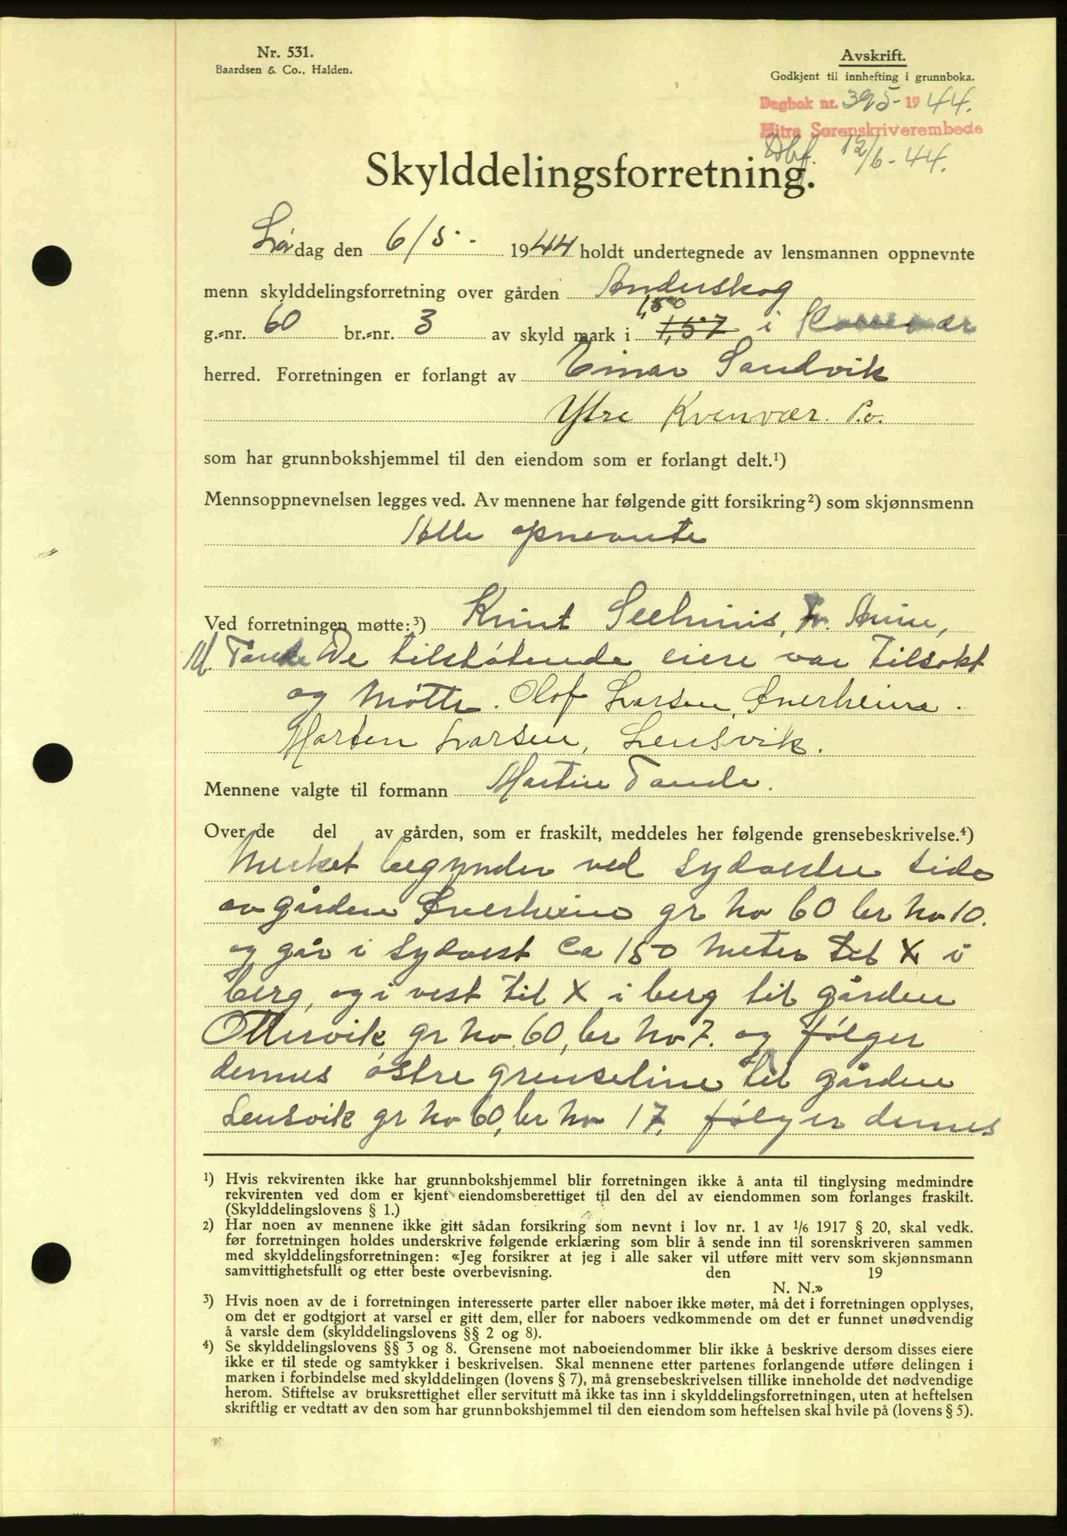 Nr. 531.
Baardsen & Co., Halden.
Avskrift.
Godkjent til innhefting i grunnboka.
Dagbok nr. 395 - 1944.
Hitra Sorenskriverembede
Dbf. 12/6-44.
Skylddelingsforretning.
Lørdag den 6/5. 1944 holdt undertegnede av lensmannen oppnevnte
menn skylddelingsforretning over gården Anderskog
1,50
g.-nr. 60 br.-nr. 3 av skyld mark i 1,57 i Kvenvær
herred. Forretningen er forlangt av Einar Sandvik
Ytre Kvenvær. P.o.
som har grunnbokshjemmel til den eiendom som er forlangt delt.¹)
Mennsoppnevnelsen legges ved. Av mennene har følgende gitt forsikring²) som skjønnsmenn
Alle opnevnte
Ved forretningen møtte:³) Knut Seehuus,
M. Tande De tilstøtende eiere var tilsakt
og møtte. Olof Larsen, Sverheim.
Marten Larsen, Lensvik.
Mennene valgte til formann Martin Tande.
Over de del av gården, som er fraskilt, meddeles her følgende grensebeskrivelse.⁴)
Merket begynder ved sydvestre side
av gården gr no 60 br no 10.
og går i sydvest ca 150 meter til X i
berg, og i vest til X i berg til gården
Ottersvik gr. no. 60, br no 7. og følger
dennes østre grenseline til gården
Lensvik gr no 60, br no 17, følger dennes
¹) Hvis rekvirenten ikke har grunnbokshjemmel blir forretningen ikke å anta til tinglysing medmindre
rekvirenten ved dom er kjent eiendomsberettiget til den del av eiendommen som forlanges fraskilt.
(Skylddelingslovens § 1.)
2) Har noen av mennene ikke gitt sådan forsikring som nevnt i lov nr. 1 av 1/6 1917 § 20, skal vedk.
før forretningen holdes underskrive følgende erklæring som blir å sende inn til sorenskriveren sammen
med skylddelingsforretningen: «Jeg forsikrer at jeg i alle saker vil utføre mitt verv som skjønnsmann
samvittighetsfullt og etter beste overbevisning. den 19
N. N.»
³) Hvis noen av de i forretningen interesserte parter eller naboer ikke møter, må det i forretningen opplyses,
om det er godtgjort at varsel er gitt dem, eller for naboers vedkommende om det er funnet unødvendig
å varsle dem (skylddelingslovens §§ 2 og 8).
⁴) Se skylddelingslovens §§ 3 og 8. Grensene mot naboeiendommer blir ikke å beskrive dersom disses eiere
ikke er til stede og samtykker i beskrivelsen. Skal mennene etter partenes forlangende utføre delingen i
marken i forbindelse med skylddelingen (lovens § 7), må grensebeskrivelsen tillike inneholde det nødvendige
herom. Stiftelse av bruksrettighet eller servitutt må ikke tas inn i skylddelingsforretningen, uten at heftelsen
skriftlig er vedtatt av den som har grunnbokshjemmel til den eiendom som heftelsen skal hvile på (lovens § 5).